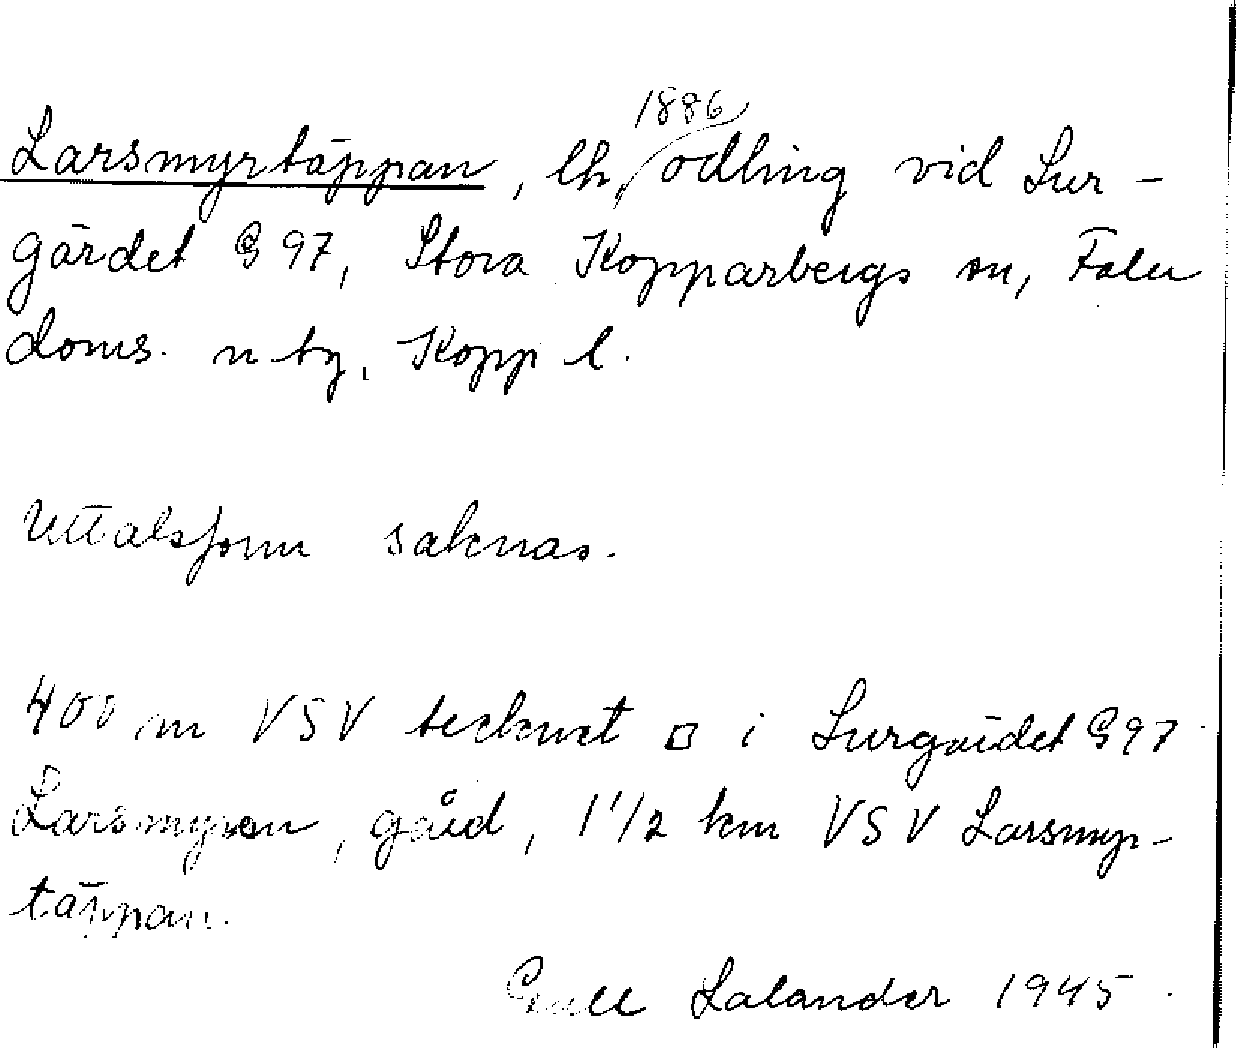 Larsmyrtäppan, lh, 1886 odling vid Sur-
gärdet G 97, Stora Kopparbergs sn, Falu
doms. n tg, Kopp l.
Uttalsform saknas.
400 m VSV tecknet □ i Surgärdet G 97
Larsmyren, gård, 1 1/2 km VSV Larsmyr-
täppan.
Lalander 1945.